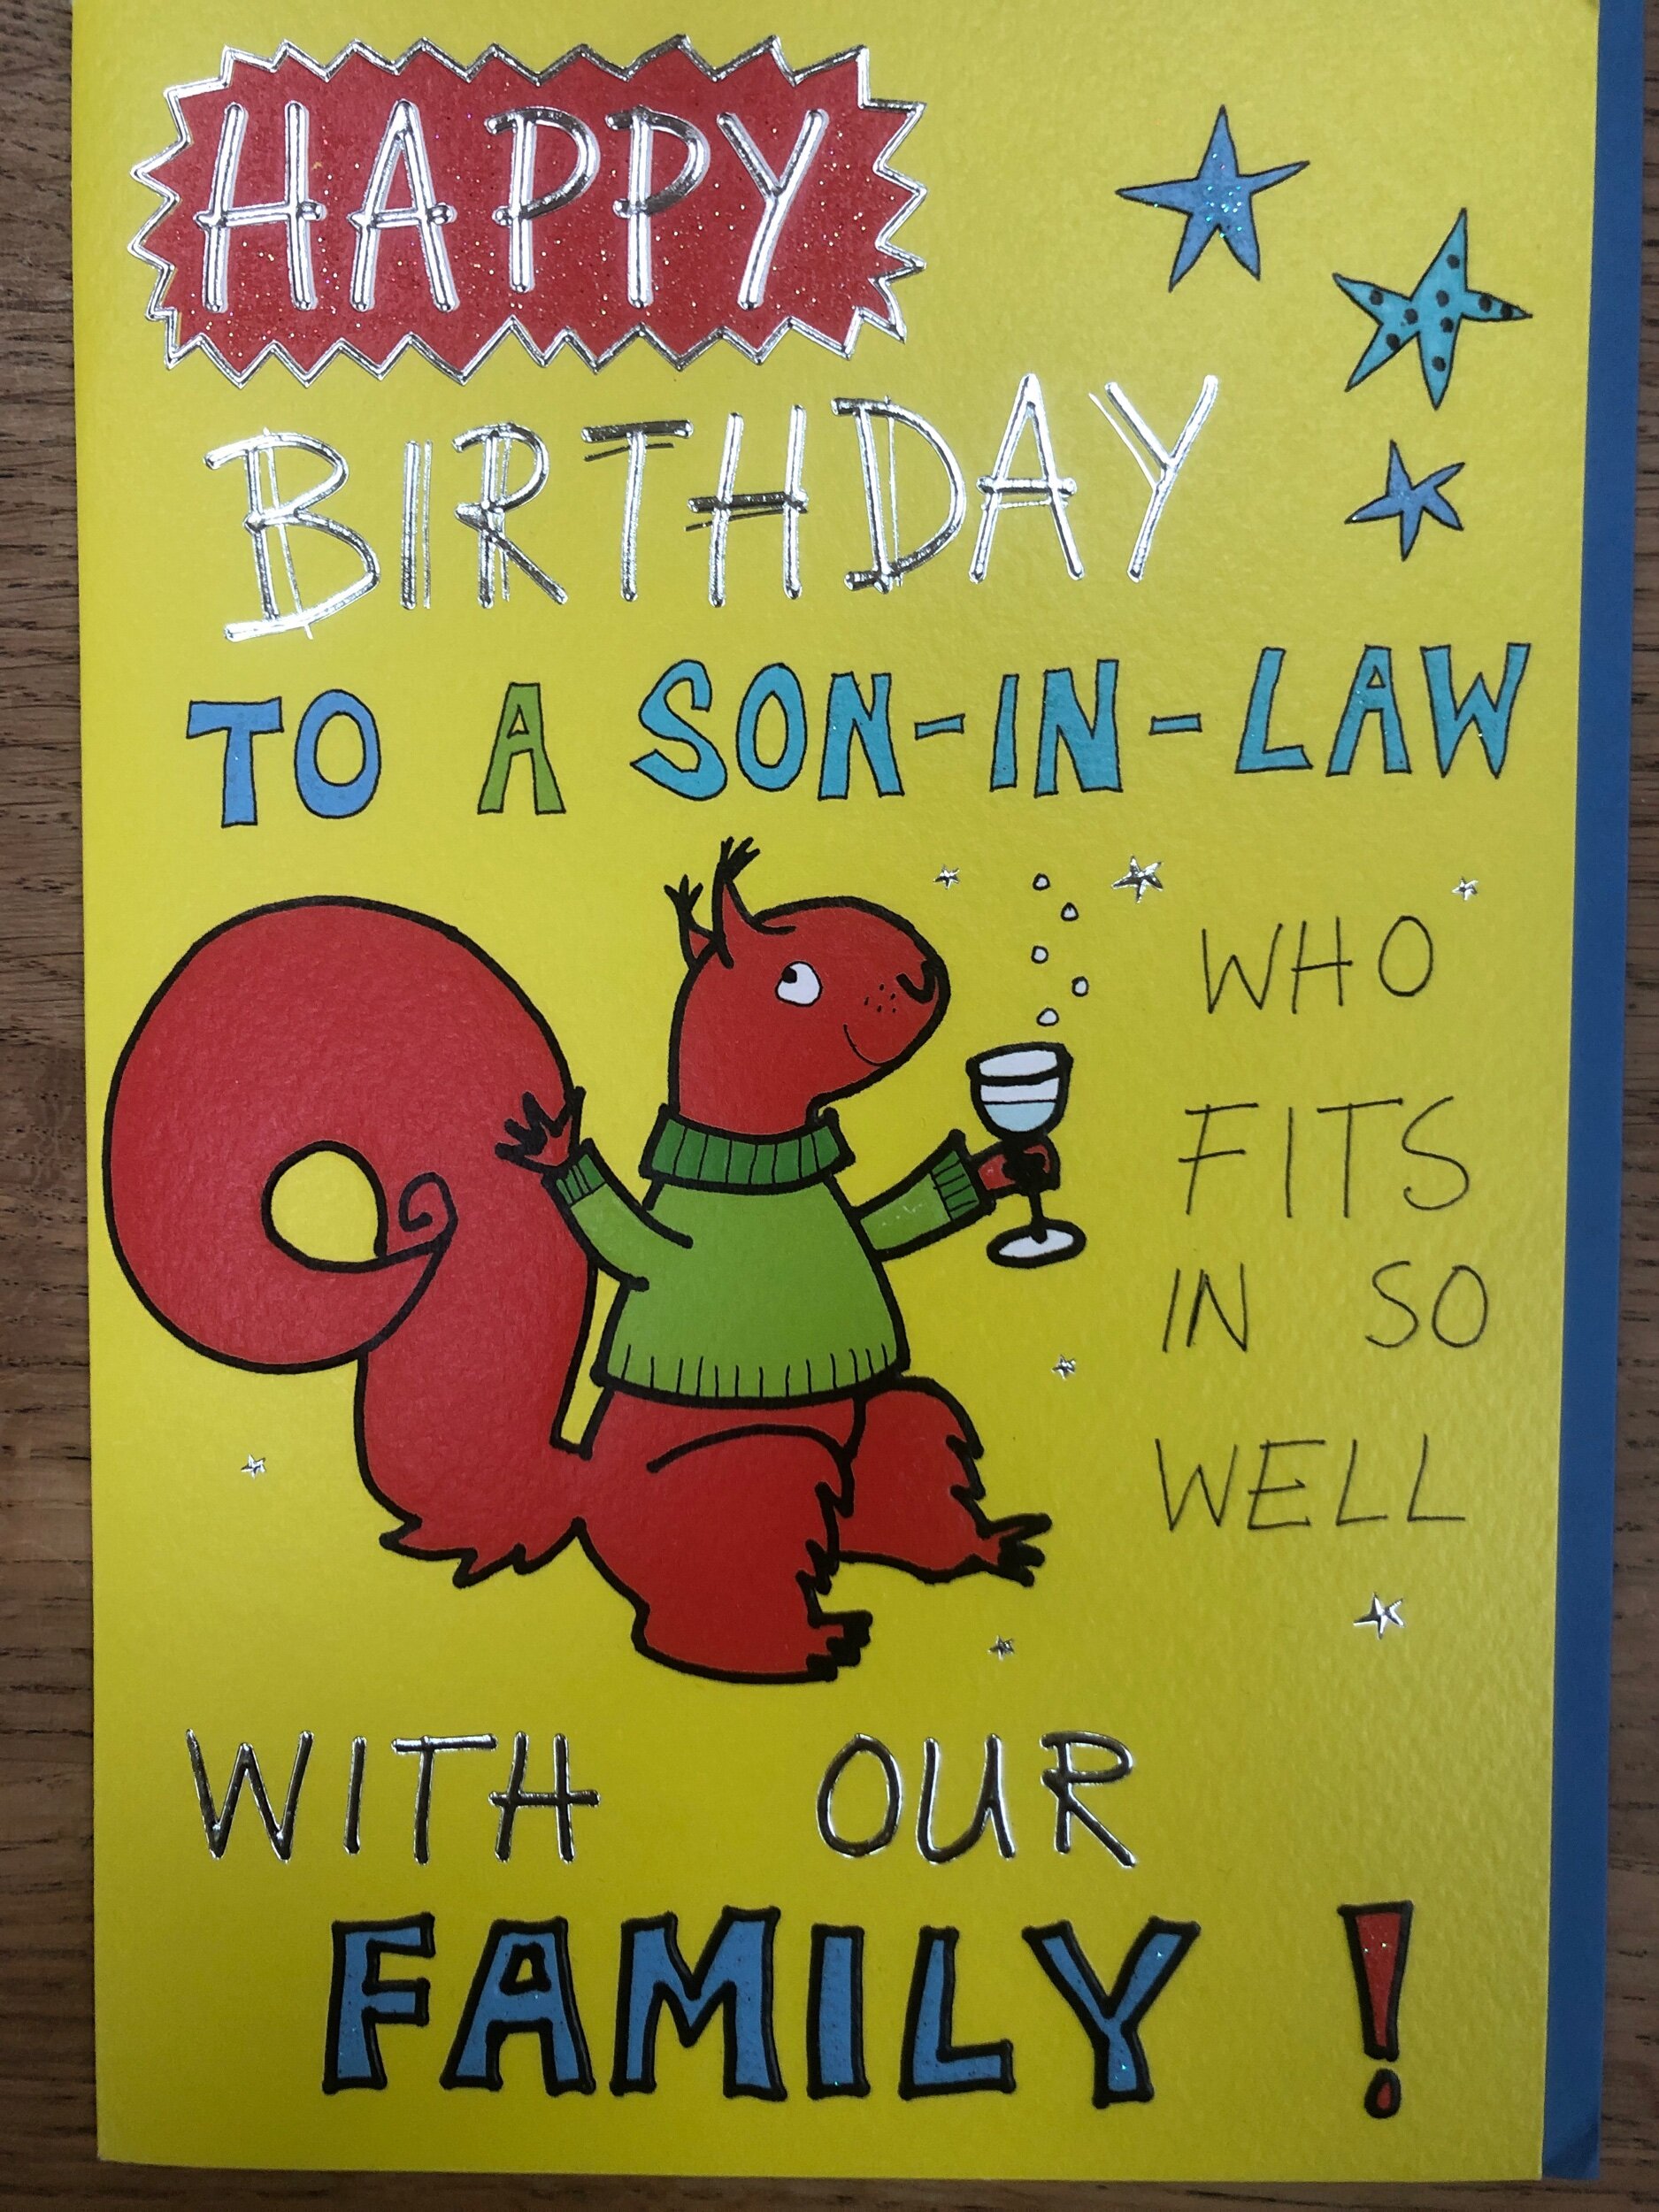 HAPPY
BIRTHDAY
TO A SON-IN-LAW
WHO
FITS
IN SO
WELL
WITH OUR
FAMILY !